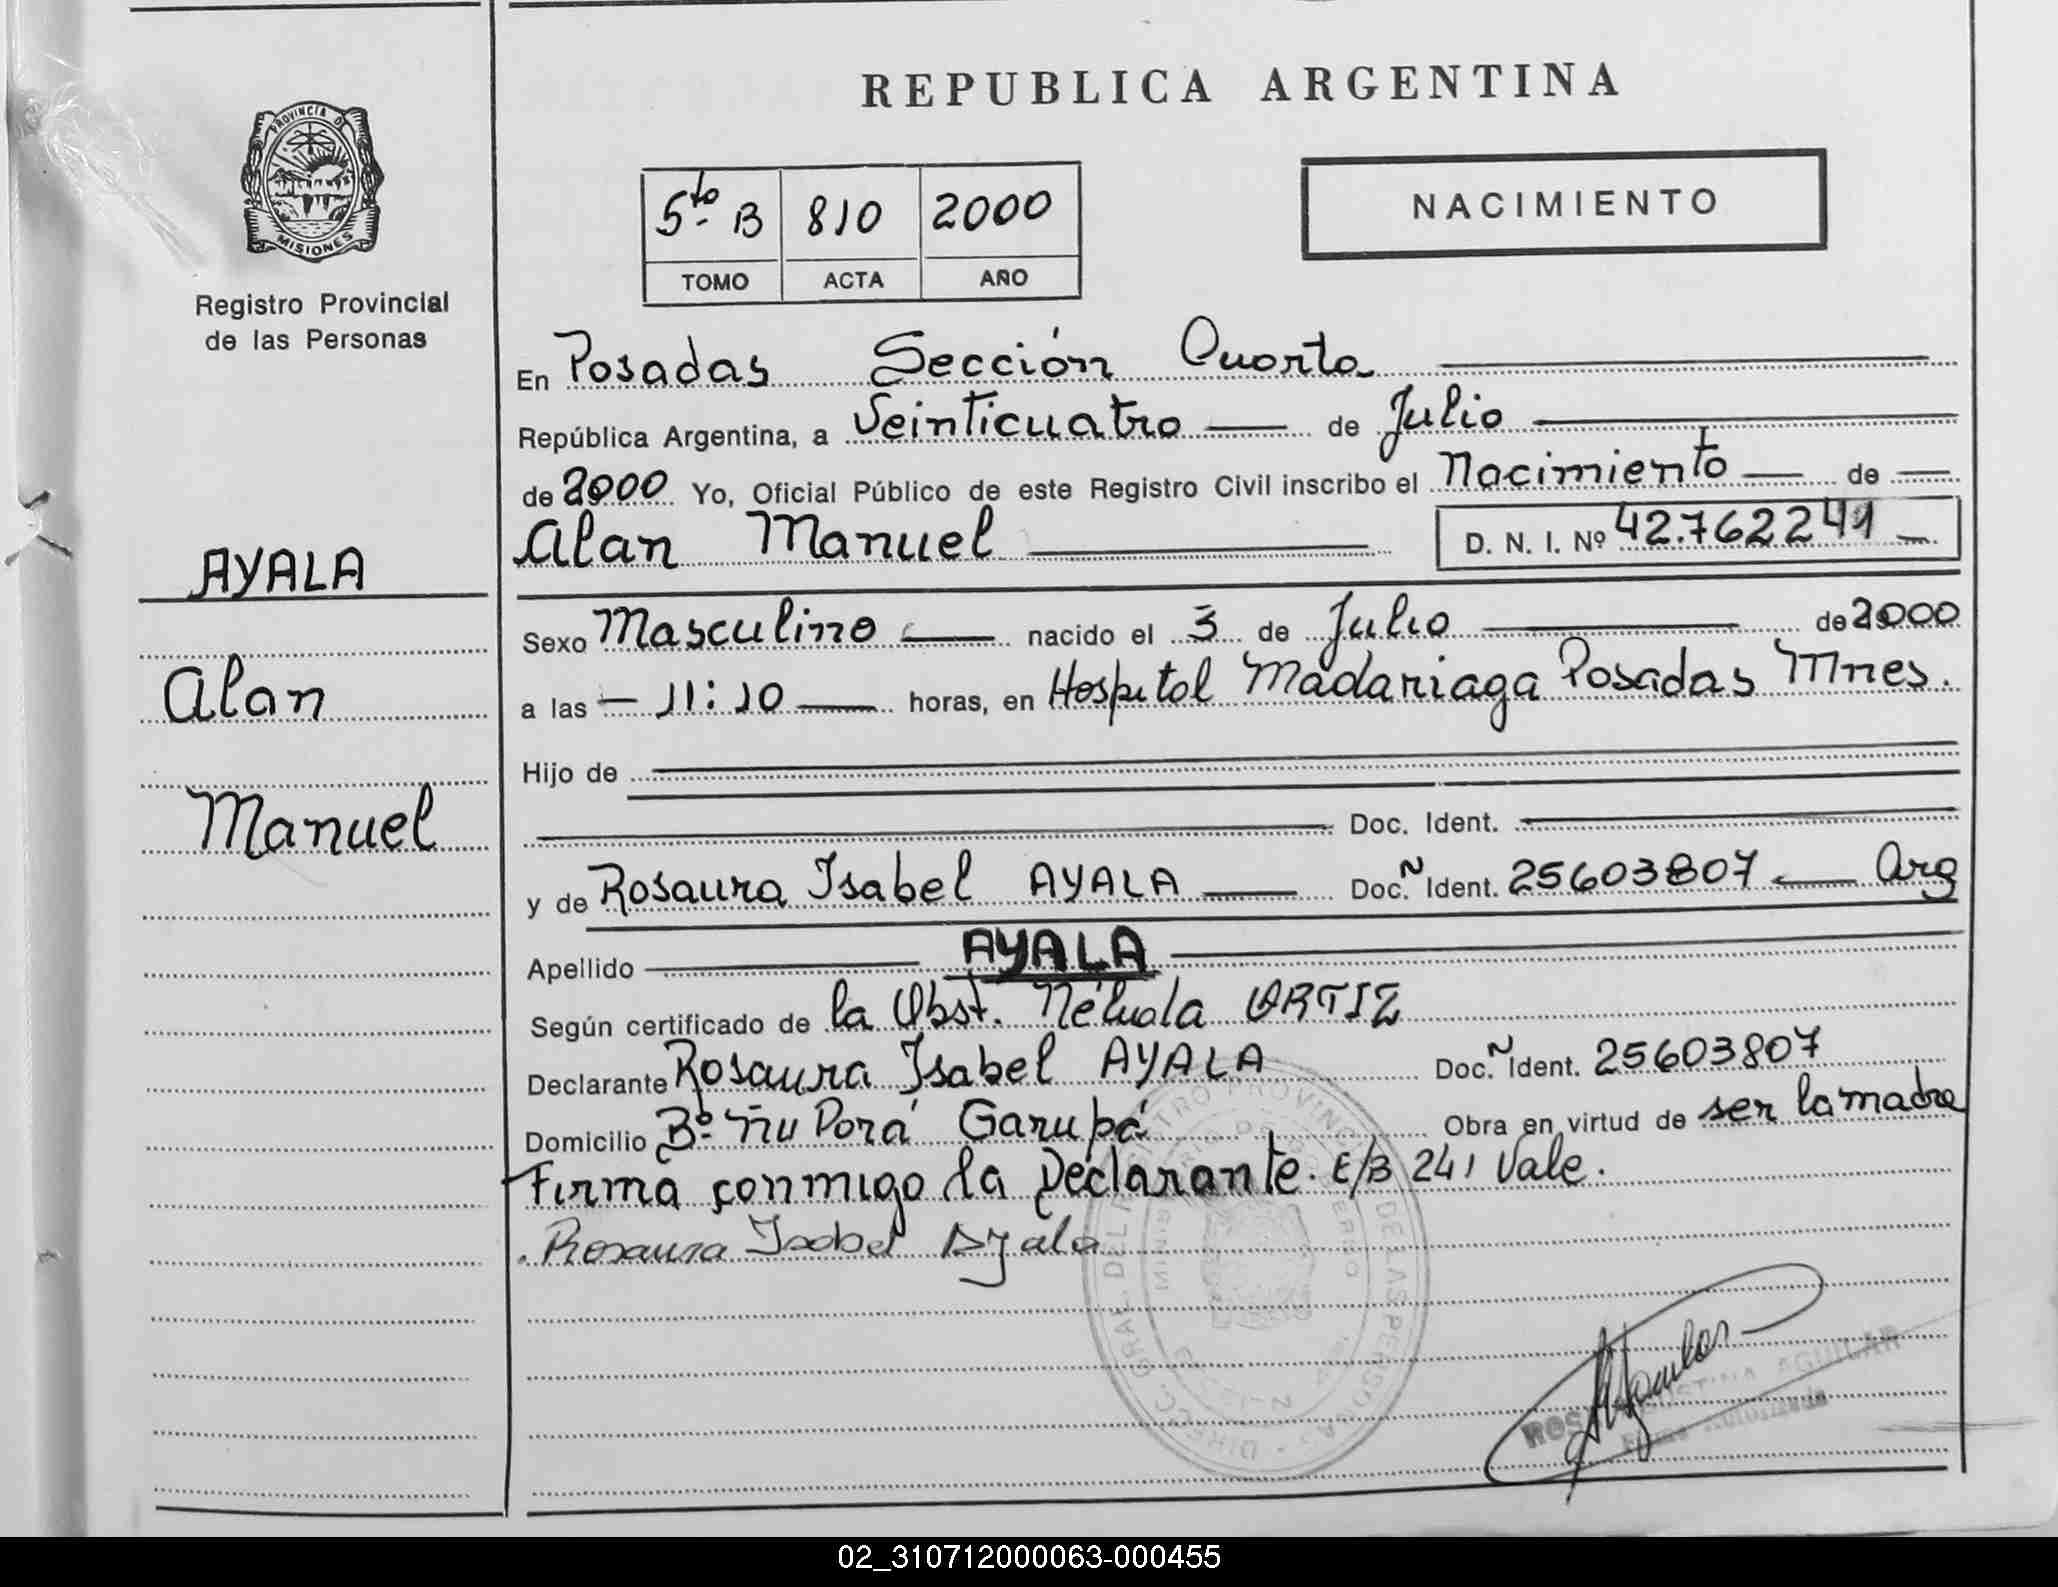 REPUBLICA ARGENTINA
PROVINCIA DE
MISIONES
Registro Provincial
de las Personas
5to B 810 2000
TOMO ACTA AÑO
NACIMIENTO
AYALA
Alan
Manuel
En Posadas Sección Cuarta
República Argentina, a Veinticuatro de Julio
de 2000 Yo, Oficial Público de este Registro Civil inscribo el Nacimiento de
Alan Manuel D. N. I. Nº 42.762241
Sexo Masculino nacido el 3 de Julio de 2000
a las 11:10 horas, en Hospital Madariaga Posadas Mnes.
Hijo de
Doc. Ident.
y de Rosaura Isabel AYALA Doc. Ident. 25603807 Arg
Apellido AYALA
Según certificado de la Obst. ORTIZ
Declarante Rosaura Isabel AYALA Doc. Ident. 25603807
Domicilio Bº Ñu Porá Garupá Obra en virtud de ser la madre
Firma conmigo la Declarante. E/B 241 Vale.
Rosaura Isabel Ayala
DIREC. GRAL. DEL REGISTRO PROVINCIAL DE LAS PERSONAS
AGUILAR
02_310712000063-000455